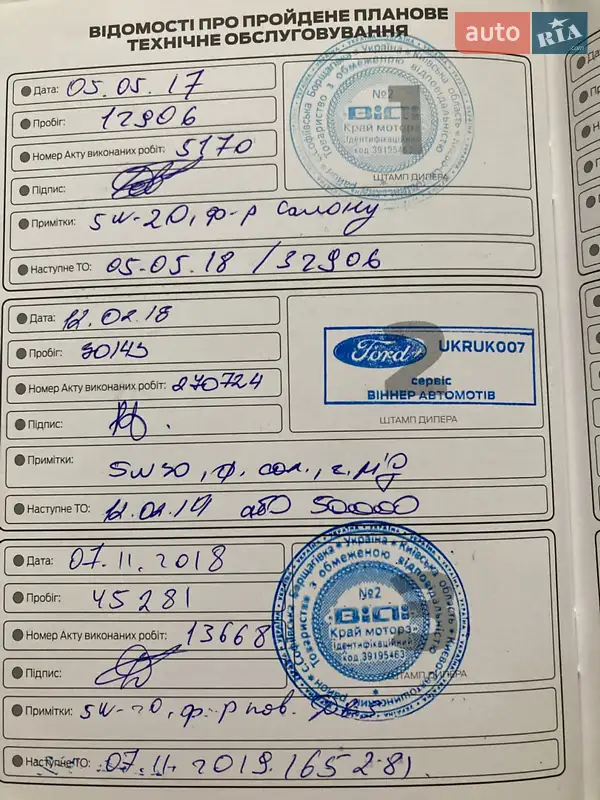 ВІДОМОСТІ ПРО ПРОЙДЕНЕ ПЛАНОВЕ
ТЕХНІЧНЕ ОБСЛУГОВУВАННЯ
auto RIA .com
Дата: 05.05.17
Пробіг: 12906
Номер Акту виконаних робіт: 5170
Підпис:
№2
ВіДі
Край моторз
Ідентифікаційний
код 39195463
ШТАМП ДИЛЕРА
Примітки: 5W-20, ф-р салону
Наступне ТО: 05.05.18 / 32906
Дата: 12.02.18
Пробіг: 30145
Номер Акту виконаних робіт: 270724
Підпис:
Ford UKRUK007
сервіс
ВІННЕР АВТОМОТІВ
ШТАМП ДИЛЕРА
Примітки: 5W30, ф. сал.,
Наступне ТО: 12.02.19 або 50000
Дата: 07.11.2018
Пробіг: 45281
Номер Акту виконаних робіт: 13668
Підпис:
№2
ВіДі
Край моторз
Ідентифікаційний
код 39195463
ШТАМП ДИЛЕРА
Примітки: 5W-20, ф-р пов.
Наступне ТО: 07.11.2019 / 65281